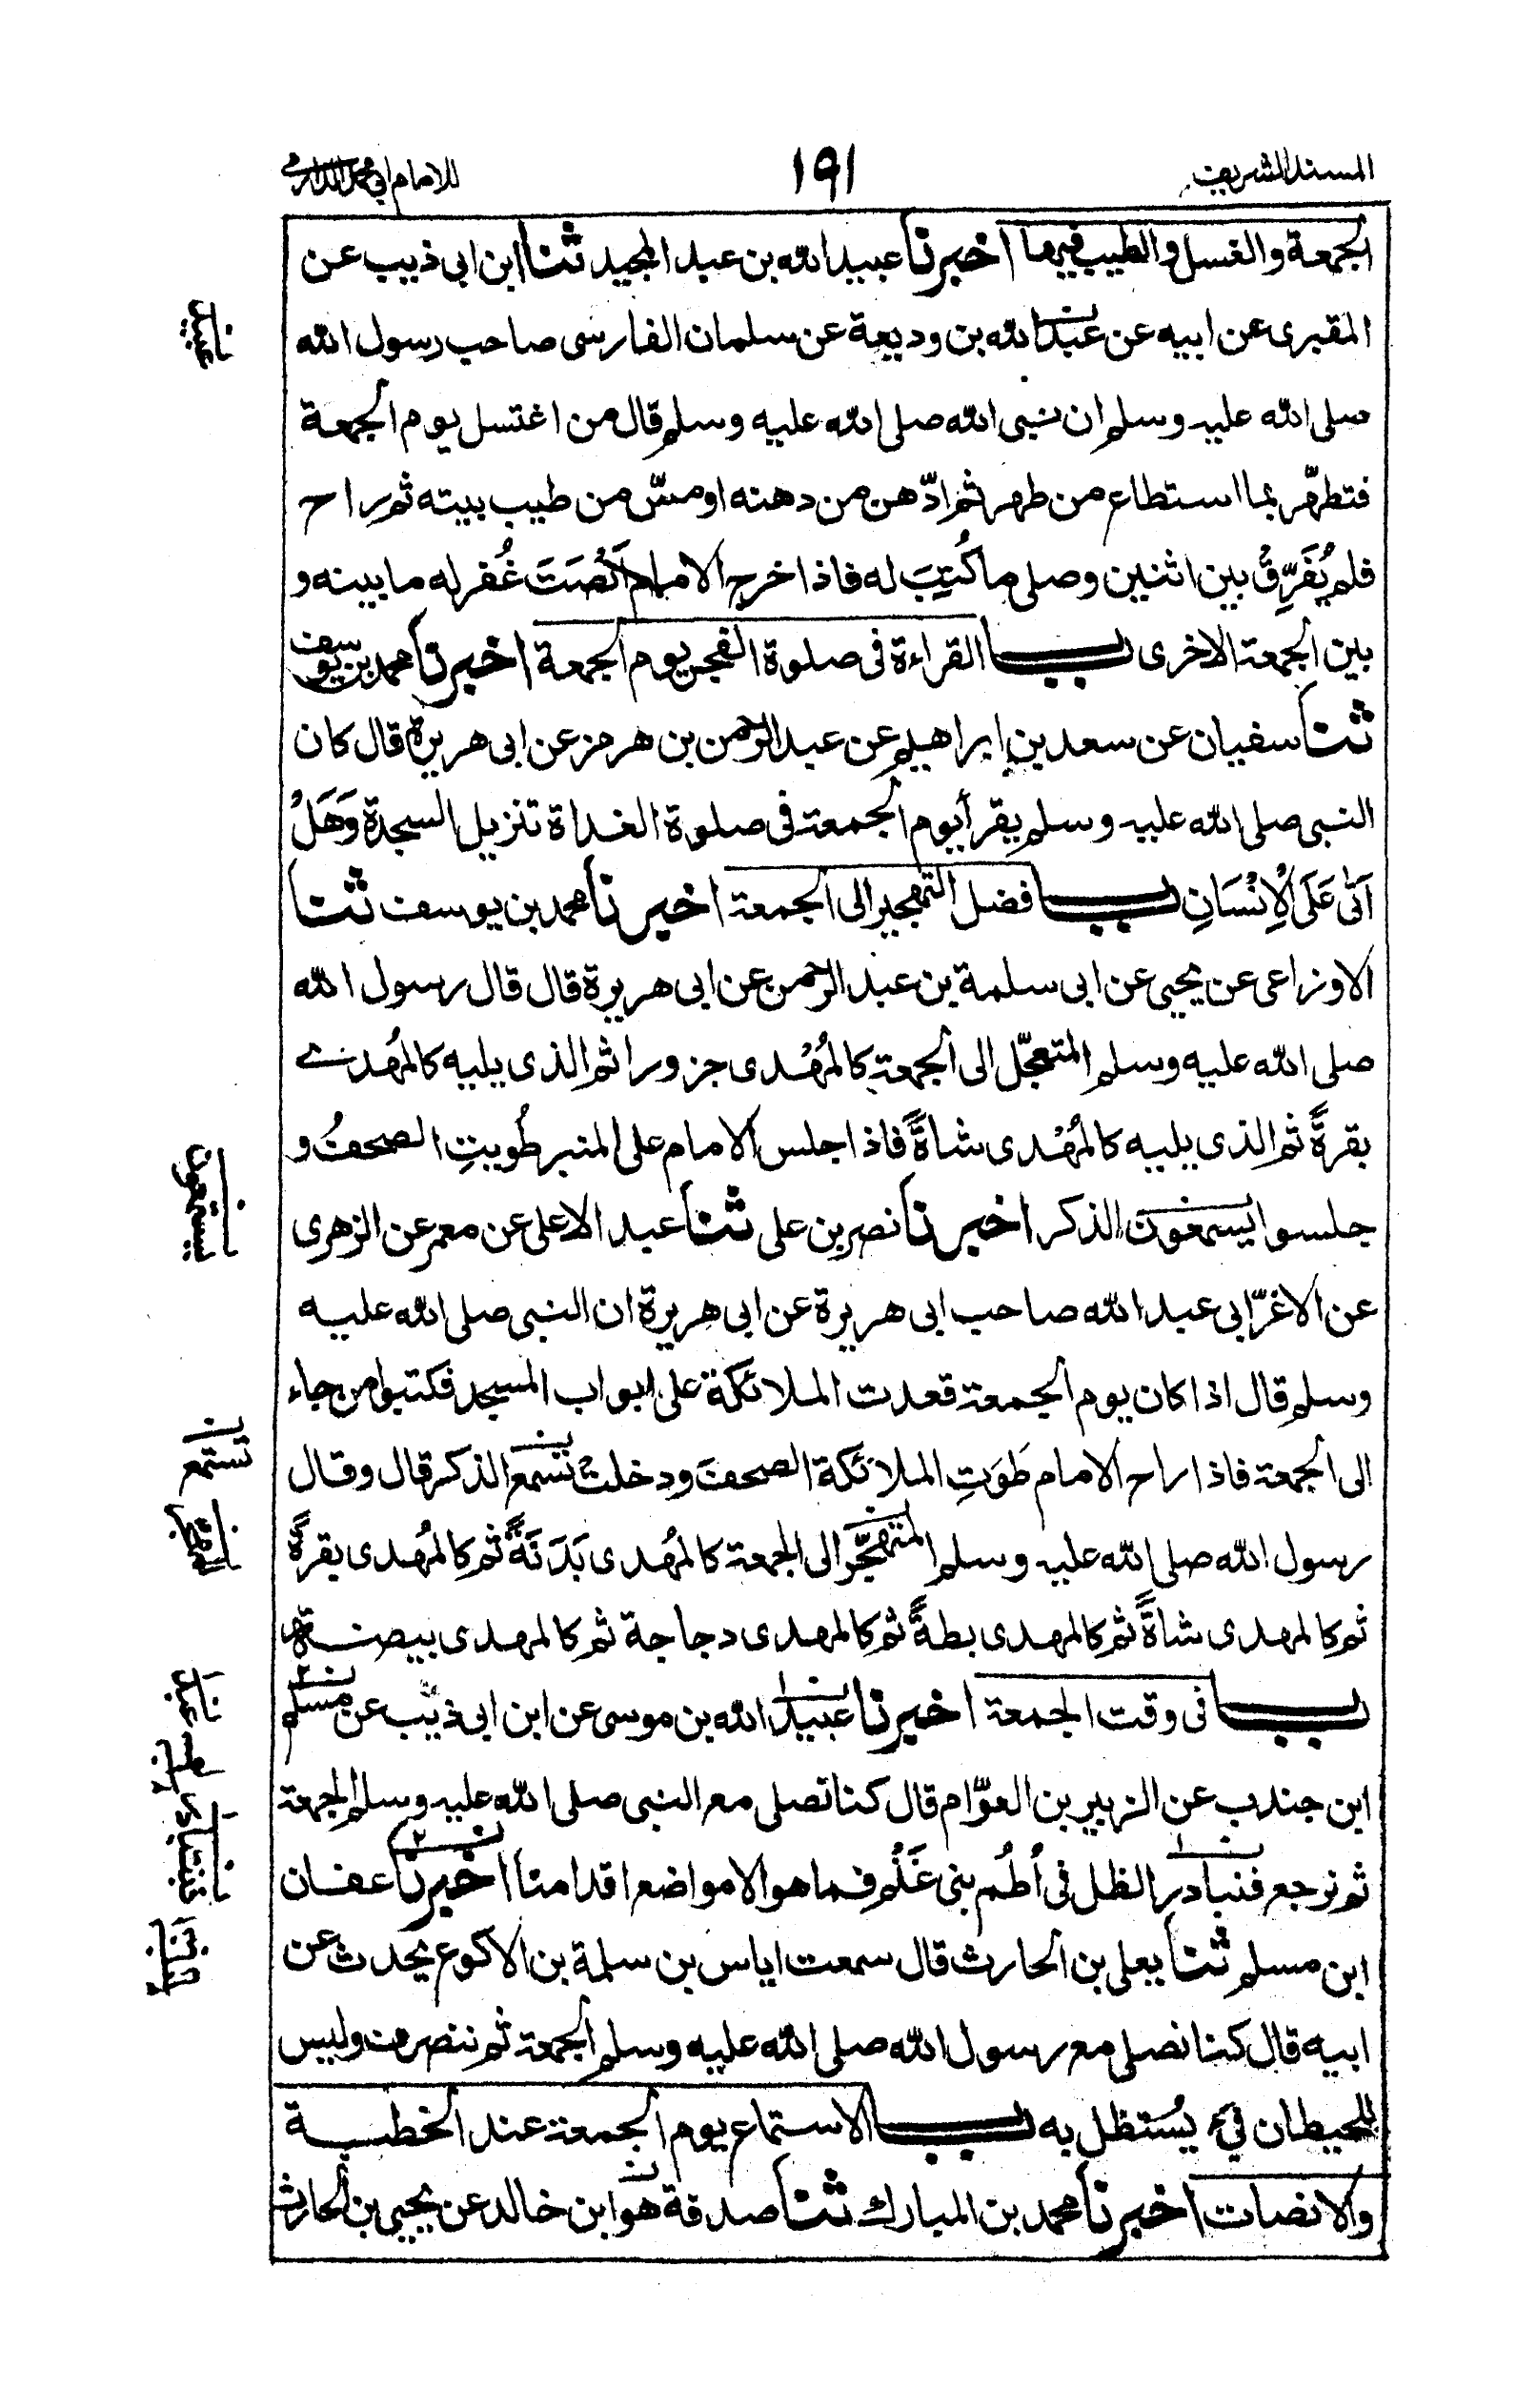 المسند الشريف
١٩١
للامام ابي محمد الدارمي
الجمعة والغسل والطيب فيها اخبرنا عبيد الله بن عبد المجيد ثنا ابن ابى ذيب عن
المقبرى عن ابيه عن عبد الله بن وديعة عن سلمان الفارسى صاحب رسول الله
صلى الله عليه وسلم ان نبى الله صلى الله عليه وسلم قال من اغتسل يوم الجمعة
فتطهّر بما استطاع من طهر ثم ادّهن من دهنه او مسّ من طيب بيته ثم راح
فلم يُفَرِّقْ بين اثنين وصلى ما كُتِبَ له فاذا خرج الامام اَنْصَتَ غُفر له ما بينه و
بين الجمعة الاخرى باب القراءة فى صلوة الفجر يوم الجمعة اخبرنا محمد بن يوسف
ثنا سفيان عن سعد بن ابراهيم عن عبد الرحمن بن هرمز عن ابى هريرة قال كان
النبى صلى الله عليه وسلم يقرأ يوم الجمعة فى صلوة الغداة تنزيل السجدة وَهَلْ
اَتٰى عَلَى الْاِنْسَانِ باب فضل التهجير الى الجمعة اخبرنا محمد بن يوسف ثنا
الاوزاعى عن يحيى عن ابى سلمة بن عبد الرحمن عن ابى هريرة قال قال رسول الله
صلى الله عليه وسلم المتعجّل الى الجمعة كالمُهْدى جزورا ثم الذى يليه كالمُهدى
بقرةً ثم الذى يليه كالمُهْدى شاةً فاذا جلس الامام على المنبر طُويتِ الصحفُ و
جلسوا يسمعون الذكر اخبرنا نصر بن على ثنا عبد الاعلى عن معمر عن الزهرى
عن الاغرّ ابى عبد الله صاحب ابى هريرة عن ابى هريرة ان النبى صلى الله عليه
وسلم قال اذا كان يوم الجمعة قعدت الملائكة على ابواب المسجد فكتبوا من جاء
الى الجمعة فاذا راح الامام طَوَتِ الملائكة الصحفَ ودخلت تسمع الذكر قال وقال
رسول الله صلى الله عليه وسلم المتهجّر الى الجمعة كالمُهدى بَدَنَةً ثم كالمُهدى بقرةً
ثم كالمهدى شاةً ثم كالمهدى بطةً ثم كالمهدى دجاجة ثم كالمهدى بيضة
باب فى وقت الجمعة اخبرنا عبيد الله بن موسى عن ابن ابى ذيب عن مسلم
ابن جندب عن الزبير بن العوّام قال كنا نصلى مع النبى صلى الله عليه وسلم الجمعة
ثم نرجع فنبادر الظل فى اُطُم بنى غَنْم فما هو الا مواضع اقدامنا اخبرنا عفان
ابن مسلم ثنا يعلى بن الحارث قال سمعت اياس بن سلمة بن الاكوع يحدث عن
ابيه قال كنا نصلى مع رسول الله صلى الله عليه وسلم الجمعة ثم ننصرف وليس
للحيطان فيء يُستظل به باب الاستماع يوم الجمعة عند الخطبة
والانصات اخبرنا محمد بن المبارك ثنا صدقة هو ابن خالد عن يحيى بن الحارث
عبيد
يستمعون
تستمع